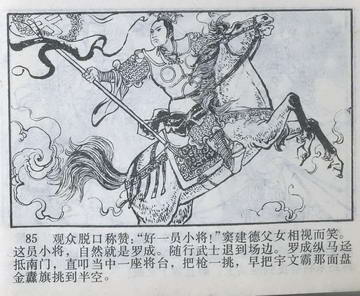 85 观众脱口称赞:“好一员小将!”窦建德父女相视而笑。
这员小将,自然就是罗成。随行武士退到场边。罗成纵马迳
抵南门,直叩当中一座将台,把枪一挑,早把宇文霸那面盘
金纛旗挑到半空。